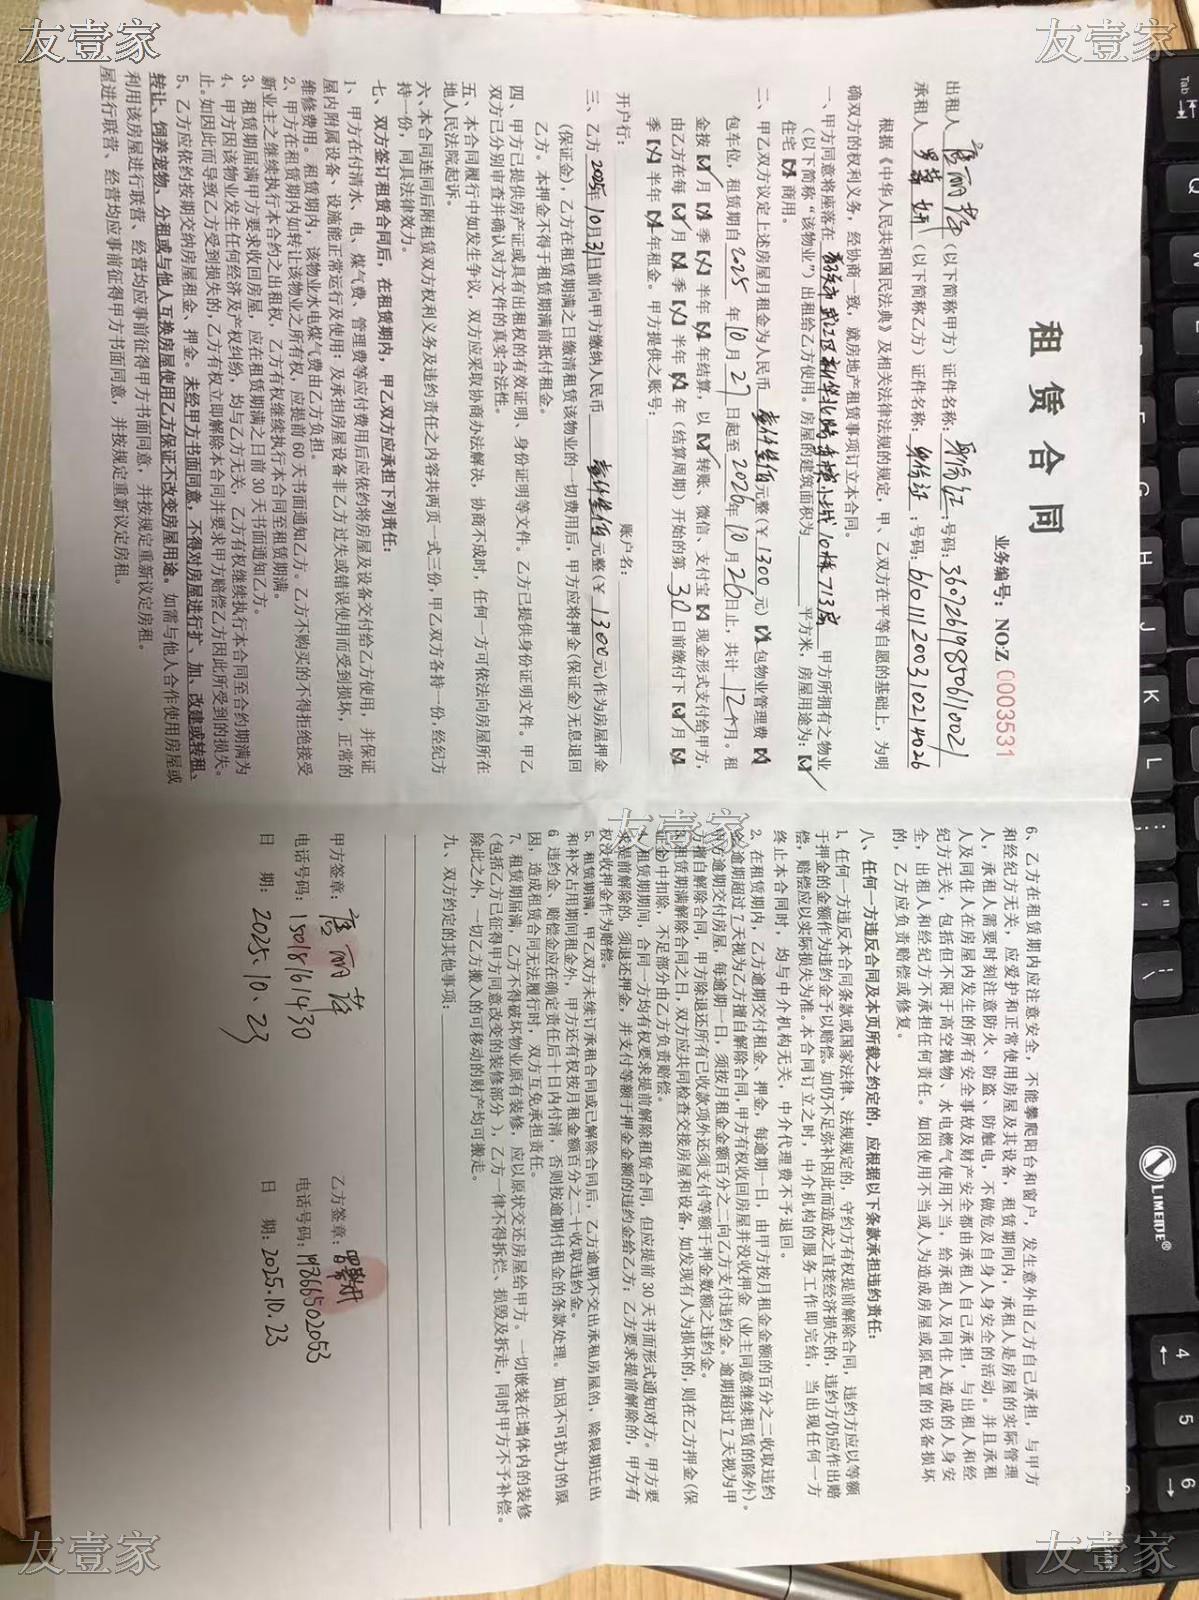 友壹家
友壹家
租 赁 合 同
业务编号：NO:Z 0003531
出租人 （以下简称甲方）证件名称: 身份证 ;号码: 360726198506110021
承租人 （以下简称乙方）证件名称: 身份证 ;号码:
根据《中华人民共和国民法典》及相关法律法规的规定，甲、乙双方在平等自愿的基础上，为明
确双方的权利义务，经协商一致，就房地产租赁事项订立本合同。
一、甲方同意将座落在 武江区 10栋713房 甲方所拥有之物业
（以下简称“该物业”）出租给乙方使用。房屋的建筑面积为 平方米，房屋用途为:【√】
住宅【 】商用。
二、甲乙双方议定上述房屋月租金为人民币 壹仟叁佰 元整（￥1300 元）【 】包物业管理费【 】
包车位，租赁期自 2025 年 10 月 27 日起至 2026 年 10 月 26 日止，共计 12 个月。租
金按【√】月【 】季【 】半年【 】年结算，以【√】转账、微信、支付宝【 】现金形式支付给甲方，
由乙方在每【√】月【 】季【 】半年【 】年（结算周期）开始的第 30 日前缴付下【√】月【 】
季【 】半年【 】年租金。甲方提供之账号:
开户行: 账户名:
三、乙方 2025年10月31日前向甲方缴纳人民币 壹仟叁佰 元整（￥1300 元）作为房屋押金
（保证金），乙方在租赁期满之日缴清租赁该物业的一切费用后，甲方应将押金（保证金）无息退回
乙方。本押金不得于租赁期满前抵付租金。
四、甲方已提供房产证或具有出租权的有效证明、身份证明等文件。乙方已提供身份证明文件。甲乙
双方已分别审查并确认对方文件的真实合法性。
五、本合同履行中如发生争议，双方应采取协商办法解决，协商不成时，任何一方可依法向房屋所在
地人民法院起诉。
六、本合同连同后附租赁双方权利义务及违约责任之内容共两页一式三份，甲乙双方各持一份，经纪方
持一份，同具法律效力。
七、双方签订租赁合同后，在租赁期内，甲乙双方应承担下列责任:
1、甲方在付清水、电、煤气费、管理费等应付费用后应依约将房屋及设备交付给乙方使用，并保证
屋内附属设备、设施能正常运行及使用；及承担房屋设备非乙方过失或错误使用而受到损坏，正常的
维修费用。租赁期内，该物业水电煤气费由乙方负担。
2、甲方在租赁期内如转让该物业之所有权，应提前 60 天书面通知乙方。乙方不购买的不得拒绝接受
新业主之继续执行本合约之出租权，乙方有权继续执行本合同至租赁期满。
3、租赁期届满甲方要求收回房屋，应在租赁期满之日前 30 天书面通知乙方。
4、甲方因该物业发生任何经济及产权纠纷，均与乙方无关，乙方有权继续执行本合同至合约期满为
止。如因此而导致乙方受到损失的，乙方有权立即解除本合同并要求甲方赔偿乙方因此所受到的损失。
5、乙方应依约按期交纳房屋租金、押金。未经甲方书面同意，不得对房屋进行扩、加、改建或转租、
转让、饲养宠物、分租或与他人互换房屋使用乙方保证不改变房屋用途。如需与他人合作使用房屋或
利用该房屋进行联营、经营均应事前征得甲方书面同意，并按规定重新议定房租。
屋进行联营、经营均应事前征得甲方书面同意，并按规定重新议定房租。
友壹家
6、乙方在租赁期内应注意安全，不能攀爬阳台和窗户，发生意外由乙方自己承担，与甲方
和经纪方无关，应爱护和正常使用房屋及其设备，租赁期间内，承租人是房屋的实际管理
人，承租人需要时刻注意防火、防盗、防触电，不做危及自身人身安全的活动。并且承租
人及同住人在房屋内发生的所有安全事故及财产安全都由承租人自己承担，与出租人和经
纪方无关，包括但不限于高空抛物、水电燃气使用不当，给承租人及同住人造成的人身安
全，出租人和经纪方不承担任何责任。如因使用不当或人为造成房屋或原配置的设备损坏
的，乙方应负责赔偿或修复。
八、任何一方违反合同及本页所载之约定的，应根据以下条款承担违约责任:
1、任何一方违反本合同条款或国家法律、法规规定的，守约方有权提前解除合同，违约方应以等额
于押金的金额作为违约金予以赔偿。如仍不足弥补因此而造成之直接经济损失的，违约方仍应作出赔
偿，赔偿应以实际损失为准。本合同订立之时，中介机构的服务工作即完结，当出现任何一方
终止本合同时，均与中介机构无关，中介代理费不予退回。
2、在租赁期内，乙方逾期交付租金、押金，每逾期一日，由甲方按月租金金额的百分之二收取违约
金，逾期超过 7 天视为乙方擅自解除合同，甲方有权收回房屋并没收押金（业主同意继续租赁的除外）。
甲方逾期交付房屋，每逾期一日，须按月租金金额百分之二向乙方支付违约金。逾期超过 7 天视为甲
方擅自解除合同，甲方除退还所有已收款项外还须支付等额于押金数额之违约金。
3、租赁期满解除合同之日，双方应共同检查交接房屋和设备，如发现有人为损坏的，则在乙方押金（保
证金）中扣除，不足部分由乙方负责赔偿。
4、租赁期期间，合同一方均有权要求提前解除租赁合同，但应提前 30 天书面形式通知对方。甲方要
求提前解除的，须退还押金，并支付等额于押金金额的违约金给乙方；乙方要求提前解除的，甲方有
权没收押金作为赔偿。
5、租赁期满，甲乙双方未续订承租合同或已解除合同后，乙方逾期不交出承租房屋的，除限期迁出
和补交占用期间租金外，甲方还有权按月租金额百分之二十收取违约金。
6 违约金、赔偿金应在确定责任后十日内付清，否则按逾期付租金的条款处理。如因不可抗力的原
因，造成租赁合同无法履行时，双方互免承担责任。
7、租赁期届满，乙方不得破坏物业原有装修，应以原状交还房屋给甲方。一切嵌装在墙体内的装修
（包括乙方已征得甲方同意改变的装修部分），乙方一律不得拆烂、损毁及拆走，同时甲方不予补偿。
除此之外，一切乙方搬入的可移动的财产均可搬走。
九、双方约定的其他事项:
甲方签章: 乙方签章:
电话号码: 15018161430 电话号码: 19366502053
日 期: 2025.10.23 日 期: 2025.10.23
友壹家
友壹家
Tab
Q
A
G
H
J
K
L
LIMEIDE®
4
5
6